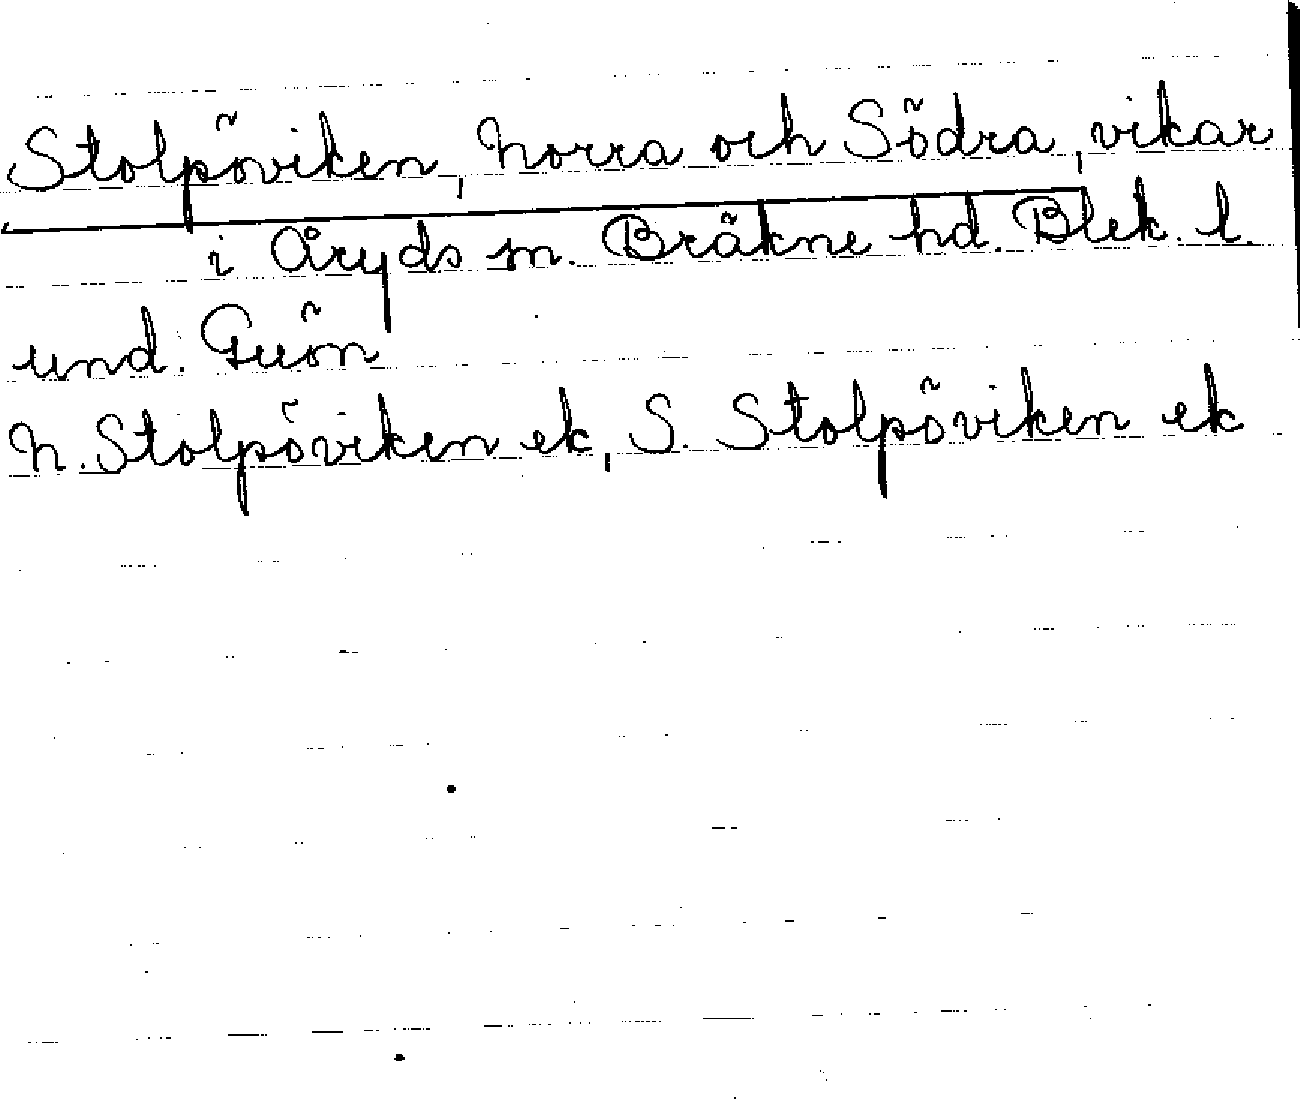 Stolpöviken, Norra och Södra, vikar
i Åryds sn. Bräkne hd. Blek. l.
und. Guön
N. Stolpöviken ek, S. Stolpöviken ek